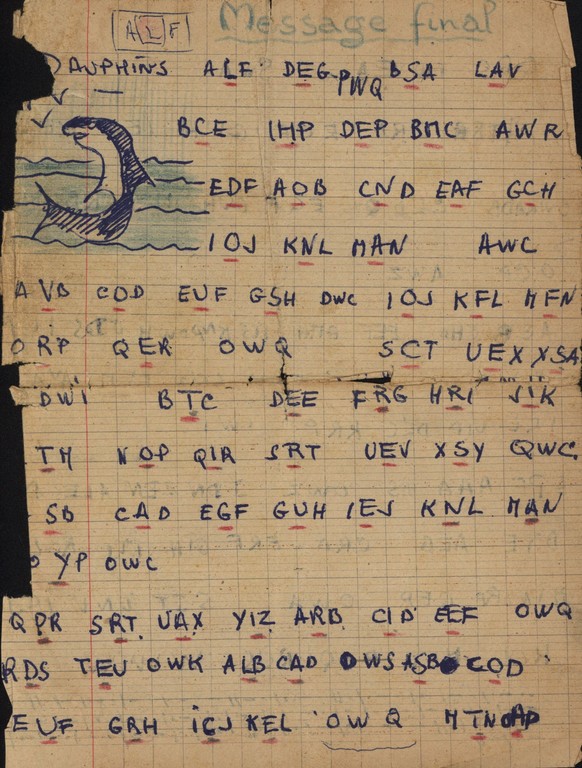 ALF
Message final
DAUPHINS ALF DEG PWQ BSA LAV
BCE IHP DEP BMC AWR
EDF AOB CND EAF GCH
IOJ KNL MAN AWC
AVB COD EUF GSH DWC IOJ KFL MFN
ORP QER OWQ SCT UEX XSA
DWI BTC DEE FRG HRI JIK
TM NOP QIR SRT UEV XSY QWC
SB CAD EGF GUH IEJ KNL MAN
YP OWC
QPR SRT UAX YIZ ARB CID EEF OWQ
RDS TEU OWK ALB CAD OWS ASB COD
EUF GRH IGJ KEL OWQ MTN